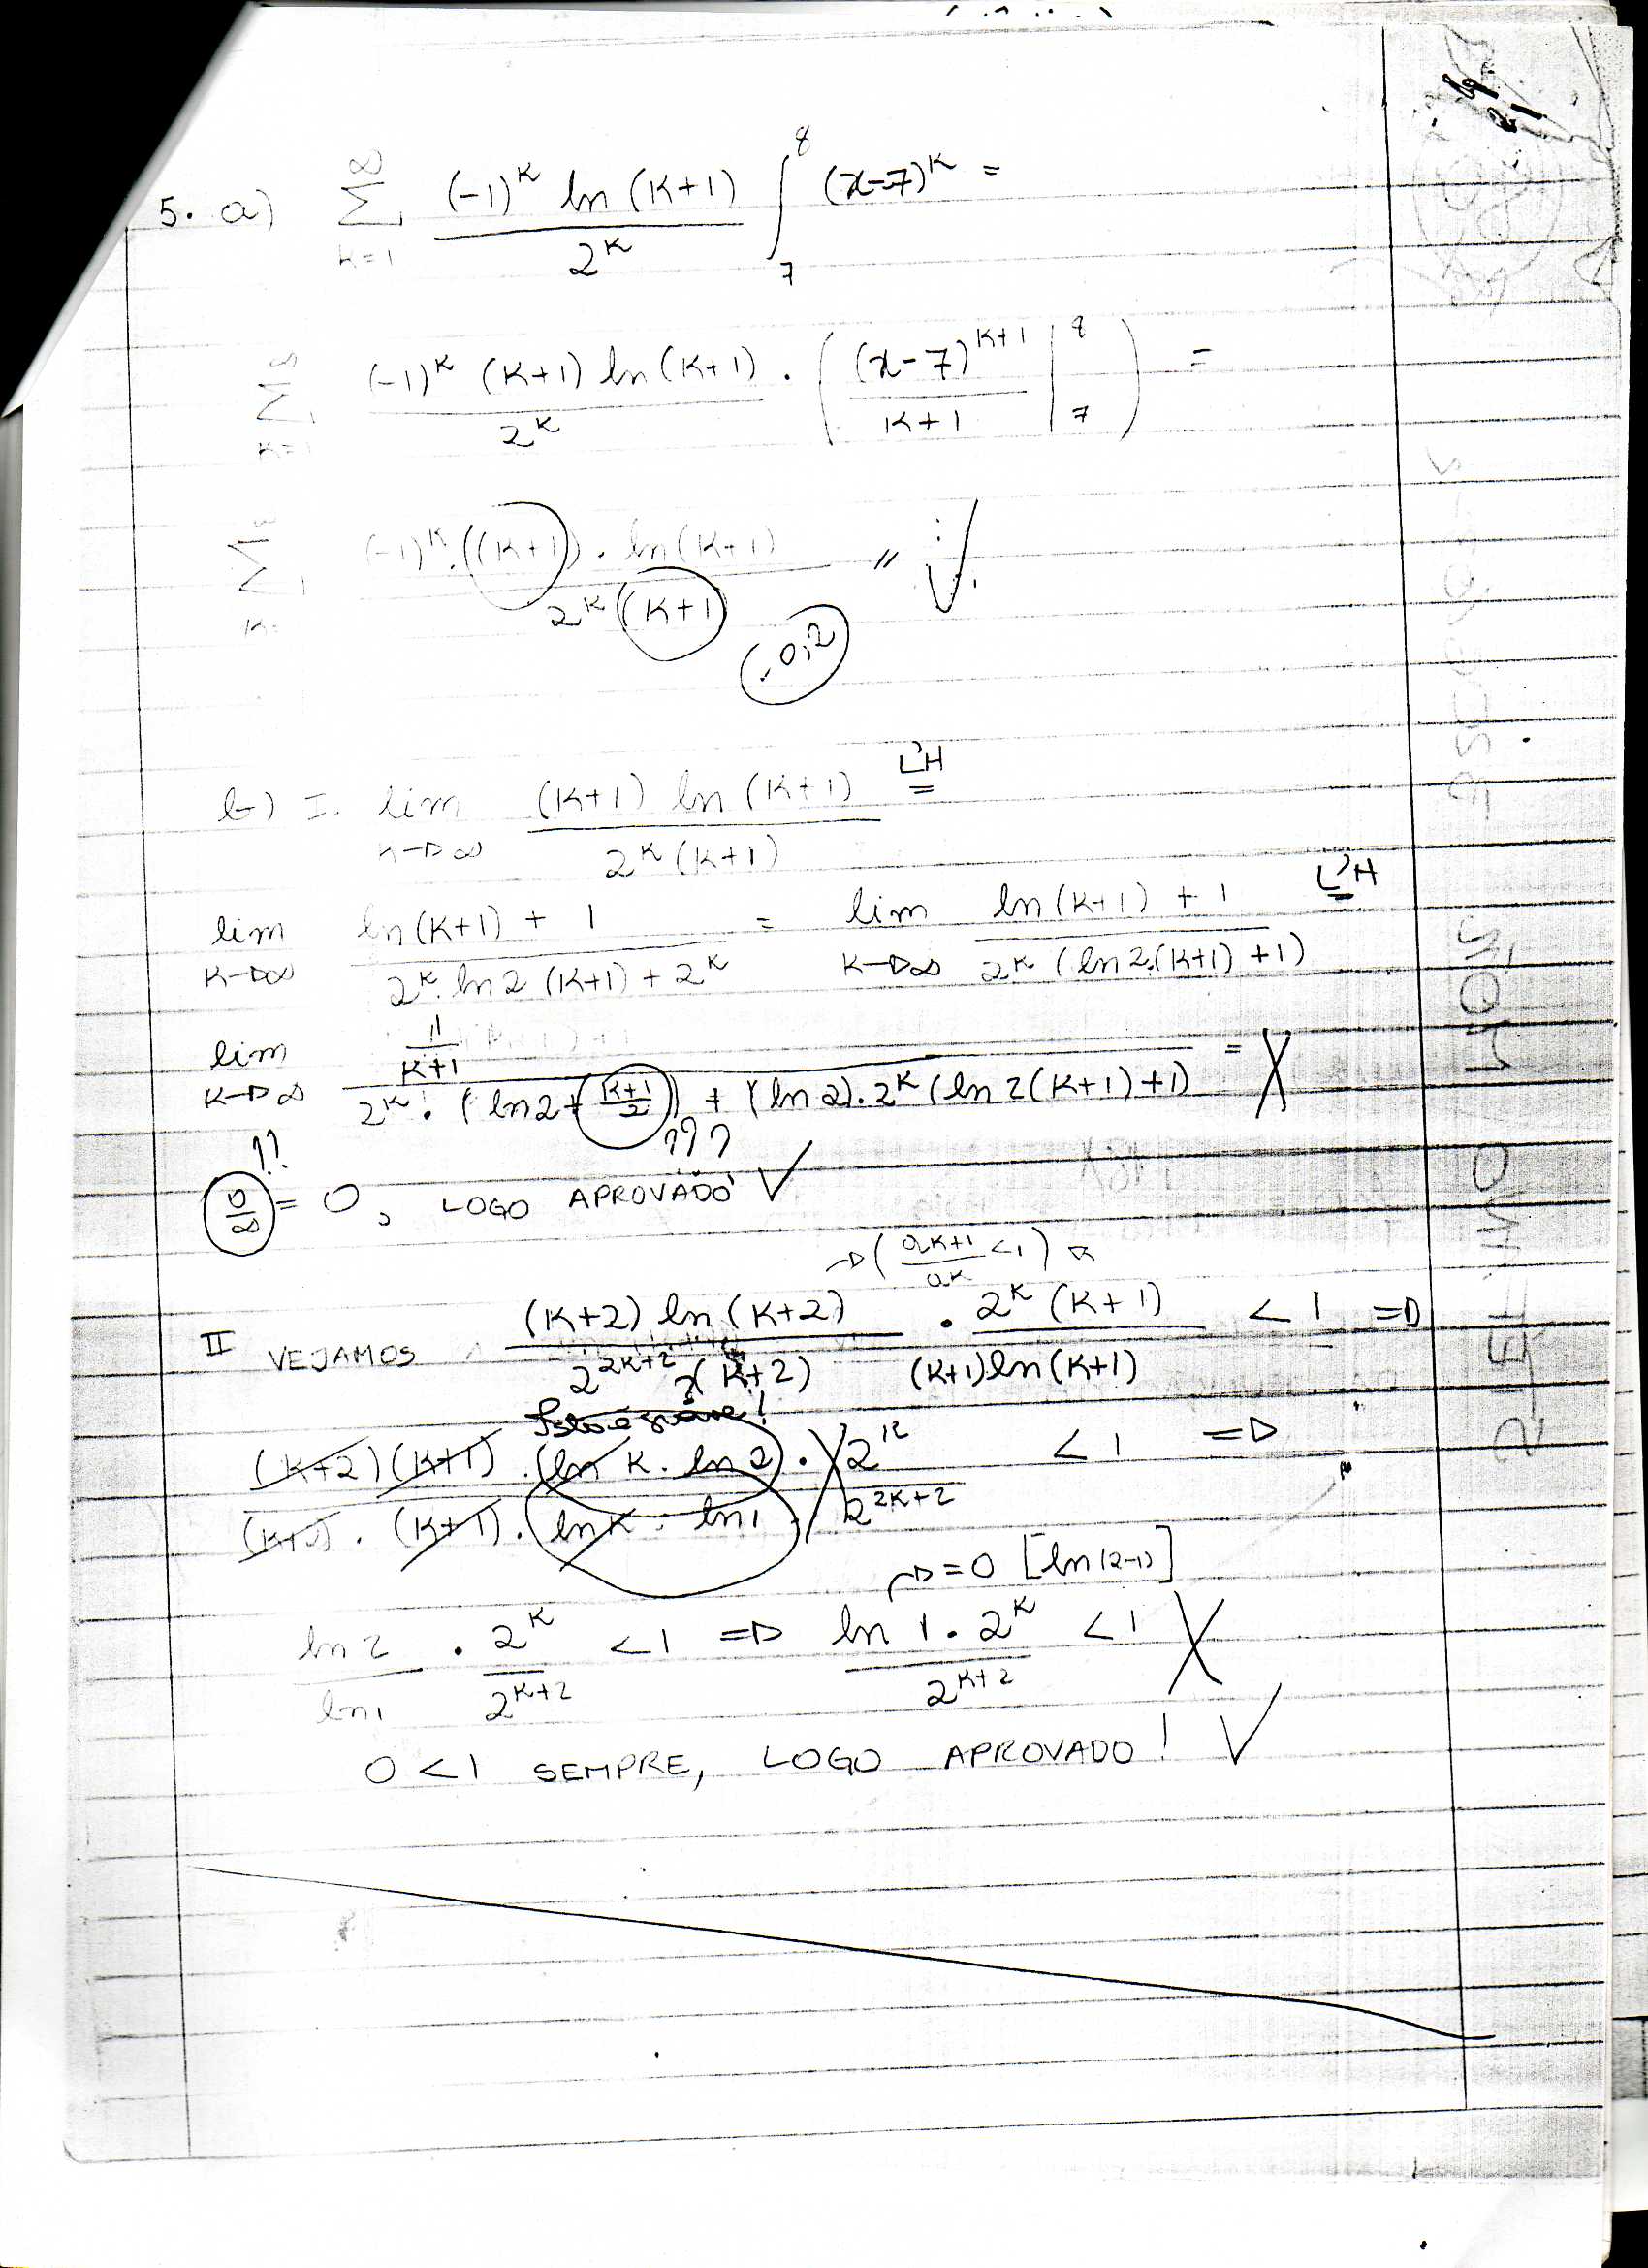 5. a) ∞ Σ k=1 (-1)^k ln (k+1) / 2^k ∫_7^8 (x-7)^k =
∞ Σ k=1 (-1)^k (k+1) ln (k+1) / 2^k . ( (x-7)^{k+1} / k+1 |_7^8 ) =
∞ Σ (-1)^k . ((k+1)) . ln (k+1) / 2^k (k+1) //
(-0,2)
b) I. lim k→∞ (k+1) ln (k+1) / 2^k (k+1) L'H =
lim k→∞ ln (k+1) + 1 / 2^k . ln 2 (k+1) + 2^k = lim k→∞ ln (k+1) + 1 / 2^k (ln 2.(k+1) + 1) L'H =
lim k→∞ 1/k+1 / 2^k . (ln 2 + (k+1/2)) + (ln 2) . 2^k (ln 2 (k+1) + 1) =
?? ???
0/∞ = 0, LOGO APROVADO ✓
→ ( ak+1 / ak < 1 )
II VEJAMOS (k+2) ln (k+2) / 2^{2k+2} (k+2) . 2^k (k+1) / (k+1) ln (k+1) < 1 ⇒
(k+2) (k+1) . (ln k . ln 2) . 2^k / (k+2) . (k+1) . (ln k . ln 1) . 2^{2k+2} < 1 ⇒
→ = 0 [ln (2-1)]
ln 2 / ln 1 . 2^k / 2^{k+2} < 1 ⇒ ln 1 . 2^k / 2^{k+2} < 1
0 < 1 SEMPRE, LOGO APROVADO! ✓